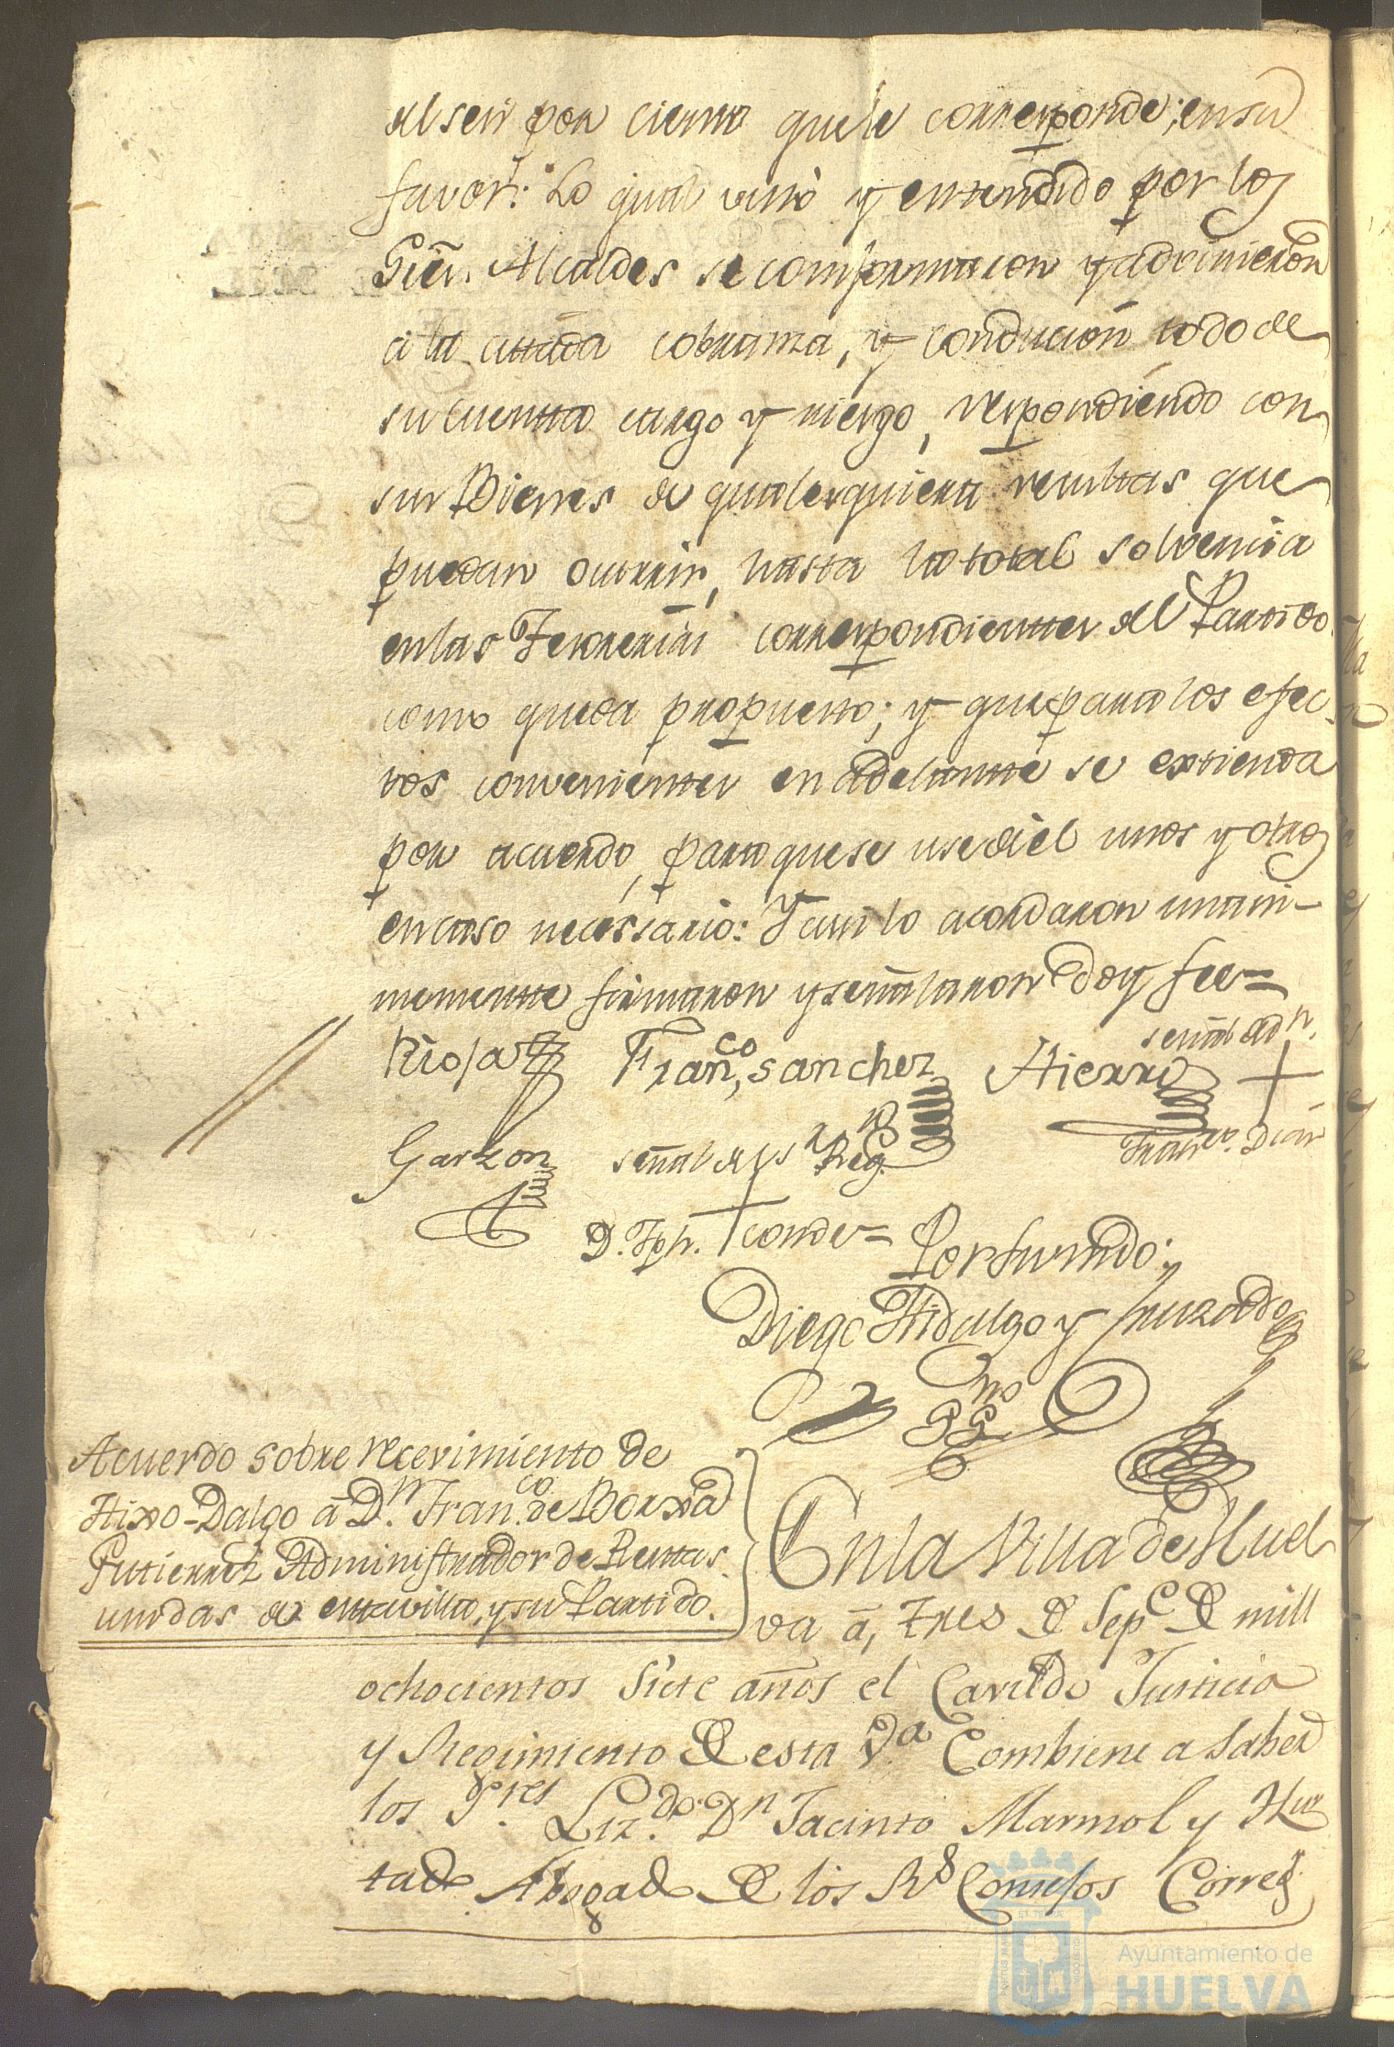 del seis por ciento que le corresponde; en su
favor: Lo qual visto y entendido por los
Sres. Alcaldes se comformaron y admitieron
a la citada cobranza, y conducion todo de
su cuentta cargo y riesgo, respondiendo con
sus Bienes de qualesquiera resultas que
puedan ocurrir, hasta la total solvencia
en las Tesorerias correspondienttes del Partido
como queda propuesto; y que para los efec-
tos convenienttes en adelantte se extienda
por acuerdo, para que se use de el unos y otros
en caso necessario: Y assi lo acordaron unani-
mementte firmaron y señalaron doy fee=
Rioja Franco, Sanchez Hierro señal de Dn.
Franco. Diaz
Garzon señal del Sr. Regr.
D. Jph. Conde=
Por su mdo:
Diego Hidalgo y
Acuerdo sobre recevimiento de
Hixo-Dalgo a Dn. Franco. de Borxa
Gutierrez Administrador de Rentas
unidas de entta villa, y su Partido.
En la Villa de Huel
va a, tres de Sepe. de mill
ochocientos siete años el Cavildo Justicia
y Regimiento de esta Va. Combiene a saber
los Sres. Lizdo. Dn Jacinto Marmol y Hur
tado Abogado de los Rs. Consejos Correg
Ayuntamiento de
HUELVA